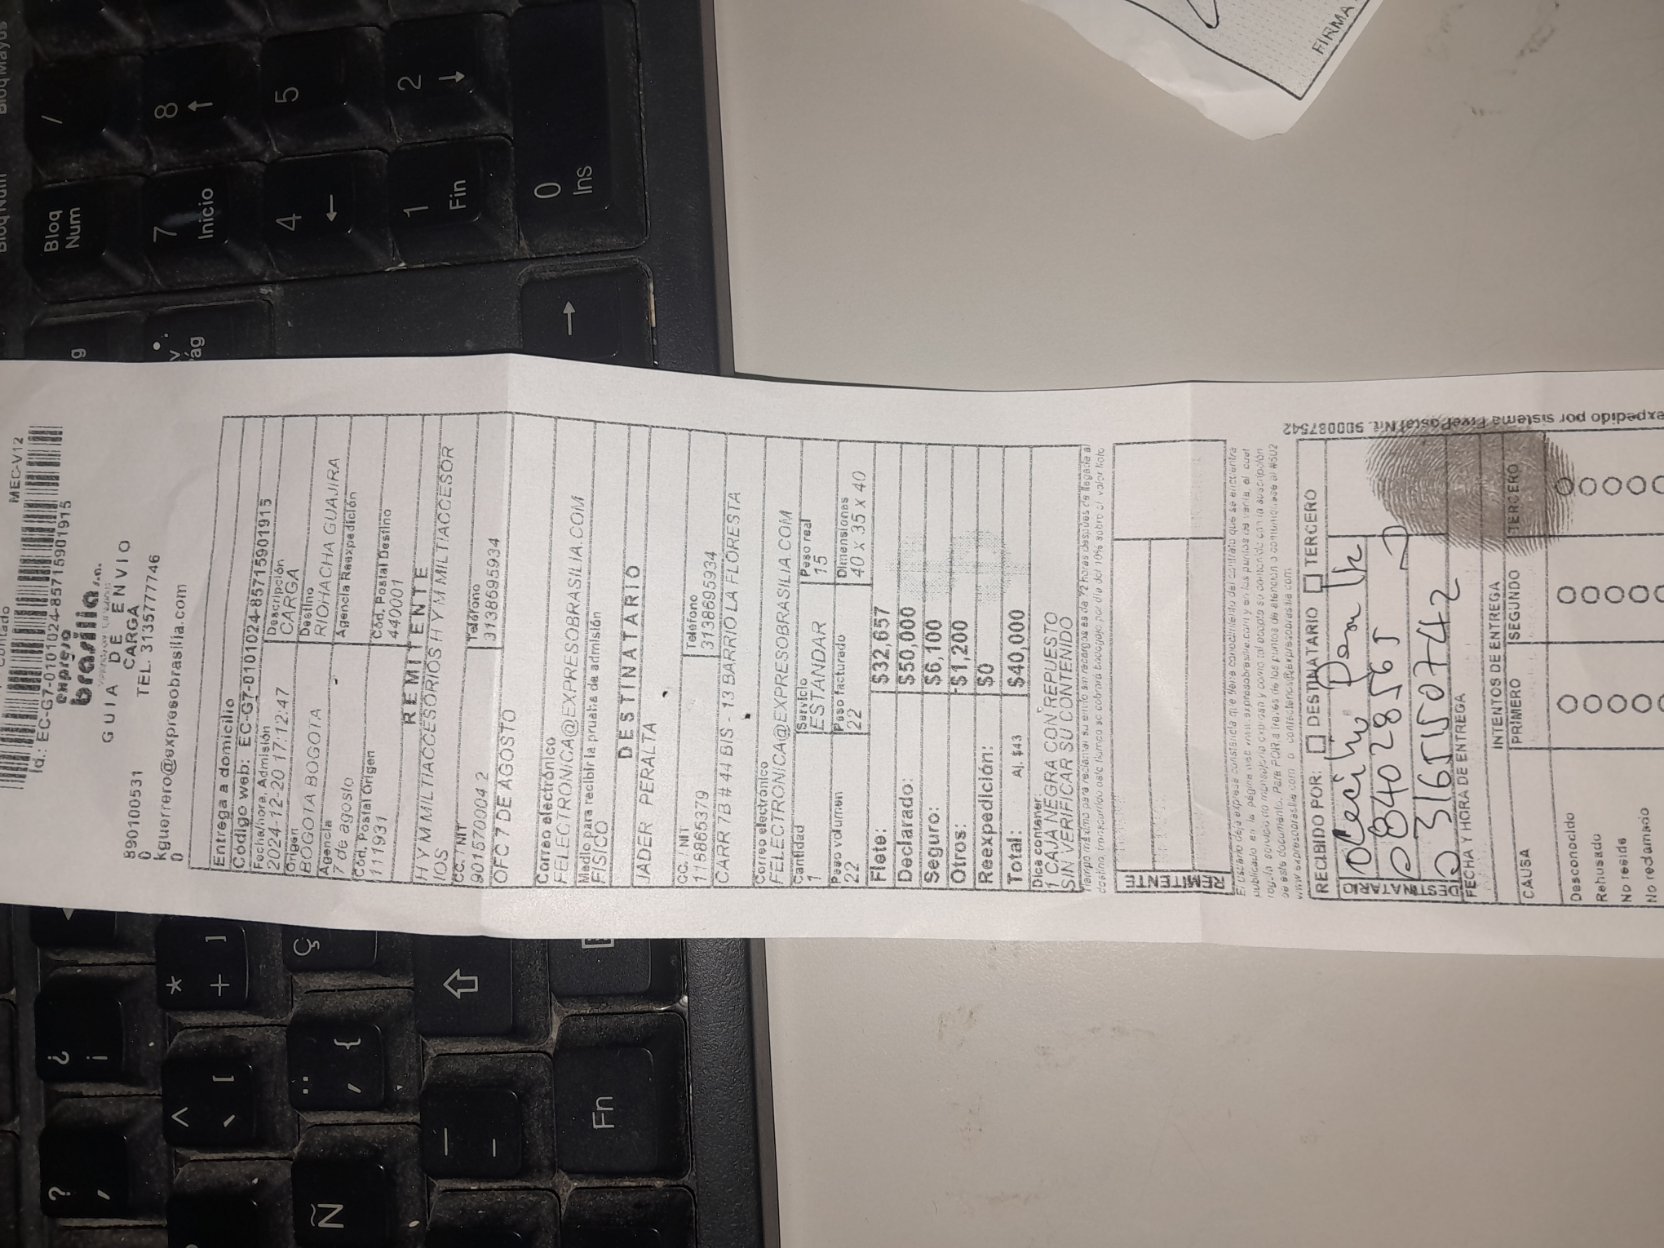 Contado
MEC-V12
Id.: EC-G7-0101024-85715901915
expreso
brasilia s.a.
GUIA DE ENVIO
CARGA
890100531 TEL. 3135777746
0
kguerrero@expresobrasilia.com
0
Entrega a domicilio
Código web: EC-G7-0101024-85715901915
Fecha/hora, Admisión
2024-12-20 17:12:47
Descripción
CARGA
Origen
BOGOTA BOGOTA
Destino
RIOHACHA GUAJIRA
Agencia
7 de agosto
Agencia Reexpedición
Cód. Postal Origen
111931
Cód. Postal Destino
440001
REMITENTE
H Y M MILTIACCESORIOS H Y M MILTIACCESOR
IOS
CC. NIT
901570004 2
Teléfono
3138695934
OFC 7 DE AGOSTO
Correo electrónico
FELECTRONICA@EXPRESOBRASILIA.COM
Medio para recibir la prueba de admisión
FISICO
DESTINATARIO
JADER PERALTA
CC. NIT
118865379
Teléfono
3138695934
CARR 7B # 44 BIS - 13 BARRIO LA FLORESTA
Correo electrónico
FELECTRONICA@EXPRESOBRASILIA.COM
Cantidad
1
Servicio
ESTANDAR
Peso real
15
Peso volumen
22
Peso facturado
22
Dimensiones
40 x 35 x 40
Flete: $32,657
Declarado: $50,000
Seguro: $6,100
Otros: $1,200
Reexpedición: $0
Total: Aj. $43 $40,000
Dice contener
1 CAJA NEGRA CON REPUESTO
SIN VERIFICAR SU CONTENIDO
REMITENTE
RECIBIDO POR: DESTINATARIO TERCERO
DESTINATARIO
84028565
3165150742
FECHA Y HORA DE ENTREGA
INTENTOS DE ENTREGA
CAUSA PRIMERO SEGUNDO TERCERO
Desconocido
Rehusado
No reside
No reclamado
expedido por sistema FivePostal Nit. 900087542
FIRMA
/
8
5
2
Bloq
Num
7
Inicio
4
1
Fin
0
Ins
g
Pág
*
+
]
Ç
¿
¡
^
[
{
?
Ñ
Fn